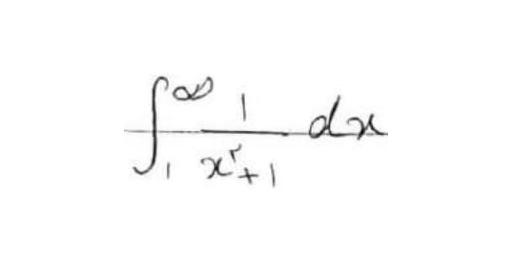 ∫₁^∞ 1/(x^r+1) dx